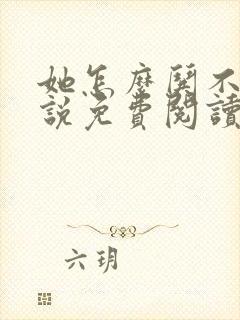 她怎麼鬨不
説免費閱讀
六玥